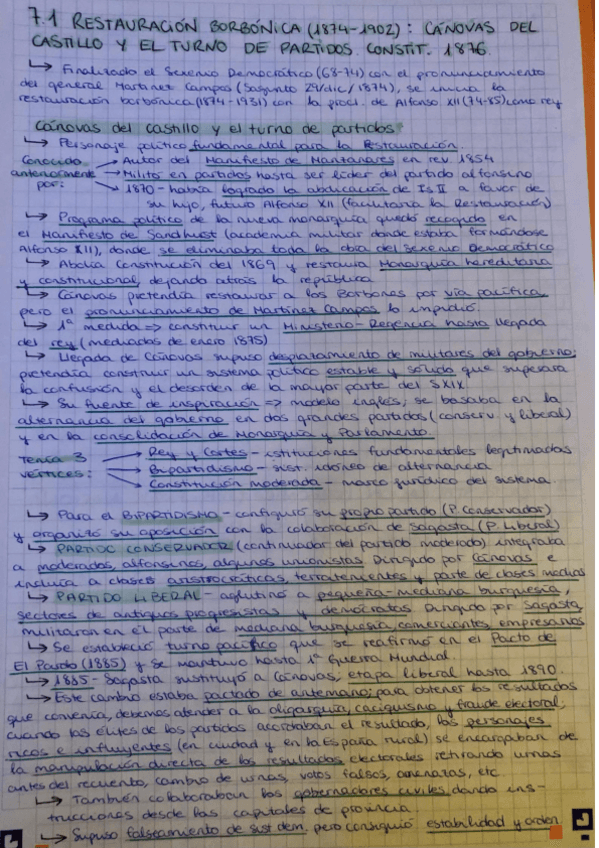 7.1 RESTAURACIÓN BORBÓNICA (1874-1902): CÁNOVAS DEL
CASTILLO Y EL TURNO DE PARTIDOS. CONSTIT. 1876.
↳ Finalizado el Sexenio Democrático (68-74) con el pronunciamiento
del general Martínez Campos (Sagunto 29/dic/1874), se inicia la
restauración borbónica (1874-1931) con la procl. de Alfonso XII (74-85) como rey
Cánovas del Castillo y el turno de partidos
↳ Personaje político fundamental para la Restauración
Conocido → Autor del Manifiesto de Manzanares en rev. 1854
anteriormente → Militó en partidos hasta ser líder del partido alfonsino
por: → 1870 - había logrado la abdicación de Is II a favor de
su hijo, futuro Alfonso XII (facilitaría la Restauración)
↳ Programa político de la nueva monarquía quedó recogido en
el Manifiesto de Sandhust (academia militar donde estaba formándose
Alfonso XII), donde se eliminaba toda la obra del Sexenio Democrático
↳ Abolía Constitución del 1869 y restaura Monarquía hereditaria
y constitucional, dejando atrás la república
↳ Cánovas pretendía restaurar a los Borbones por vía pacífica,
pero el pronunciamiento de Martínez Campos lo impidió.
↳ 1ª medida => constituir un Ministerio-Regencia hasta llegada
del rey (mediados de enero 1875)
↳ Llegada de Cánovas supuso desplazamiento de militares del gobierno;
pretendía construir un sistema político estable y sólido que superara
la confusión y el desorden de la mayor parte del S.XIX.
↳ Su fuente de inspiración => modelo inglés; se basaba en la
alternancia del gobierno en dos grandes partidos (conserv. y liberal)
y en la consolidación de Monarquía y Parlamento.
Tenía 3 → Rey y Cortes - istituciones fundamentales legitimadas
vértices: → Bipartidismo - sist. idóneo de alternancia
→ Constitución moderada - marco jurídico del sistema.
↳ Para el BIPARTIDISMO - configuró su propio partido (P. Conservador)
y organizó su oposición con la colaboración de Sagasta (P. Liberal)
↳ PARTIDO CONSERVADOR (continuador del partido moderado) integraba
a moderados, alfonsinos, algunos unionistas. Dirigido por Cánovas e
incluía a clases aristrocráticas, terratenientes y parte de clases medias
↳ PARTIDO LIBERAL - aglutinó a pequeña-mediana burguesía,
sectores de antiguos progresistas y demócratas. Dirigido por Sagasta,
militaron en él parte de mediana burguesía, comerciantes, empresarios
↳ Se estableció turno pacífico que se reafirmó en el Pacto de
El Pardo (1885) y se mantuvo hasta 1ª Guerra Mundial.
↳ 1885 - Sagasta sustituyó a Cánovas, etapa liberal hasta 1890.
↳ Este cambio estaba pactado de antemano; para obtener los resultados
que convenía, debemos atender a la oligarquía, caciquismo y fraude electoral;
cuando las élites de los partidos acordaban el resultado, los personajes
ricos e influyentes (en ciudad y en la España rural) se encargaban de
la manipulación directa de los resultados electorales retirando urnas
antes del recuento, cambio de urnas, votos falsos, amenazas, etc
↳ También colaboraban los gobernadores civiles dando ins-
trucciones desde las capitales de provincia.
↳ Supuso falseamiento de sist dem. pero consiguió estabilidad y orden